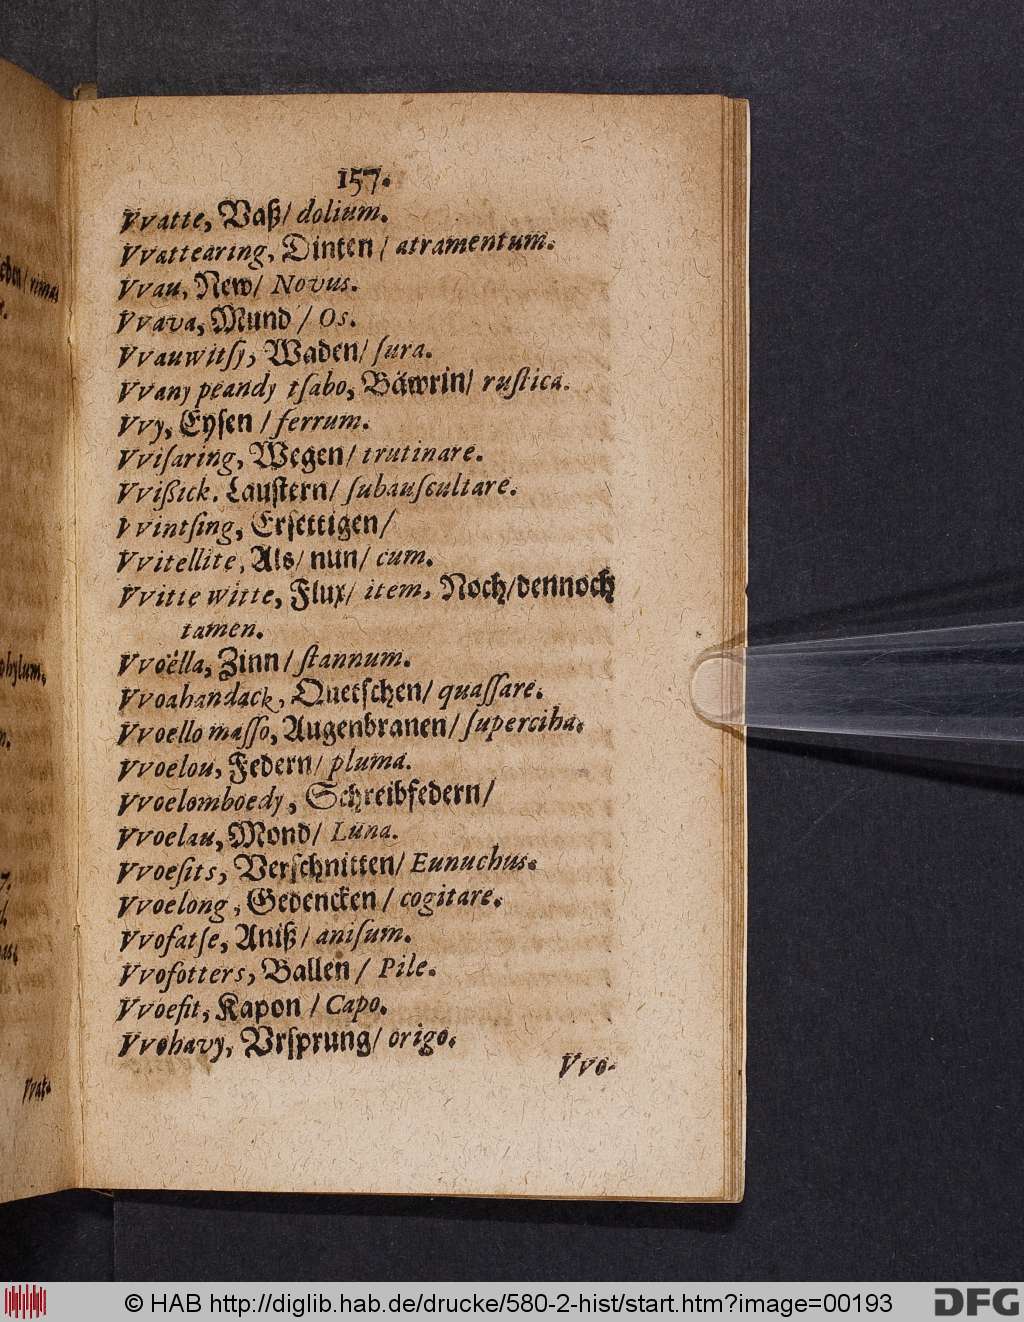 157.
Vvatte, Vaß/ dolium.
Vvattearing, Dinten / atramentum.
Vvau, New/ Novus.
Vvava, Mund / Os.
Vvauwitsy, Waden/ ſura.
Vvany peandy tſabo, Bäwrin/ ruſtica.
Vvy, Eyſen / ferrum.
Vviſaring, Wegen/ trutinare.
Vvißick. Lauſtern/ ſubauſcultare.
Vvintſing, Erſettigen/
Vvitellite, Als/ nun/ cum.
Vvitte witte, Flux/ item, Noch/dennoch
tamen.
Vvoëlla, Zinn / ſtannum.
Vvoahandack, Quetſchen/ quaſſare.
Vvoello maſſo, Augenbranen/ ſupercilia.
Vvoelou, Federn/ pluma.
Vvoelomboedy, Schreibfedern/
Vvoelau, Mond/ Luna.
Vvoeſits, Verſchnitten/ Eunuchus.
Vvoelong, Gedencken / cogitare.
Vvofatſe, Aniß/ aniſum.
Vvofotters, Ballen / Pile.
Vvoeſit, Kapon / Capo.
Vvohavy, Vrſprung/ origo.
Vvo-
eben/ rimas
r.
phylum.
n.
7.
d.
us.
Vvat-
© HAB http://diglib.hab.de/drucke/580-2-hist/start.htm?image=00193
DFG